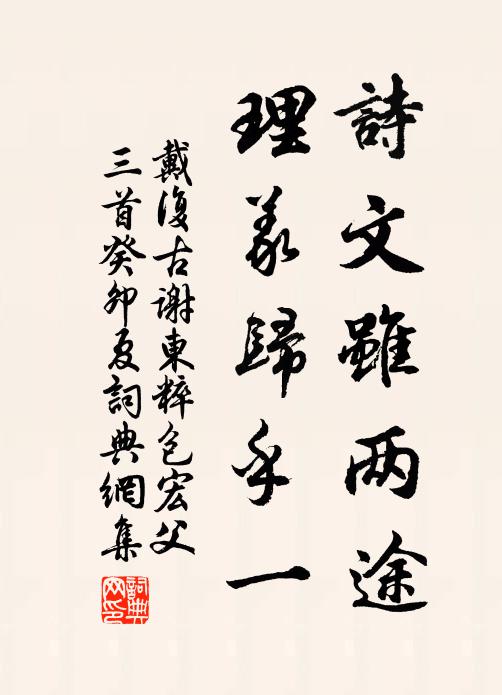 詩文雖两途
理義歸乎一
戴復古謝東粹包宏父
三首癸卯夏詞典網集
詞典网印